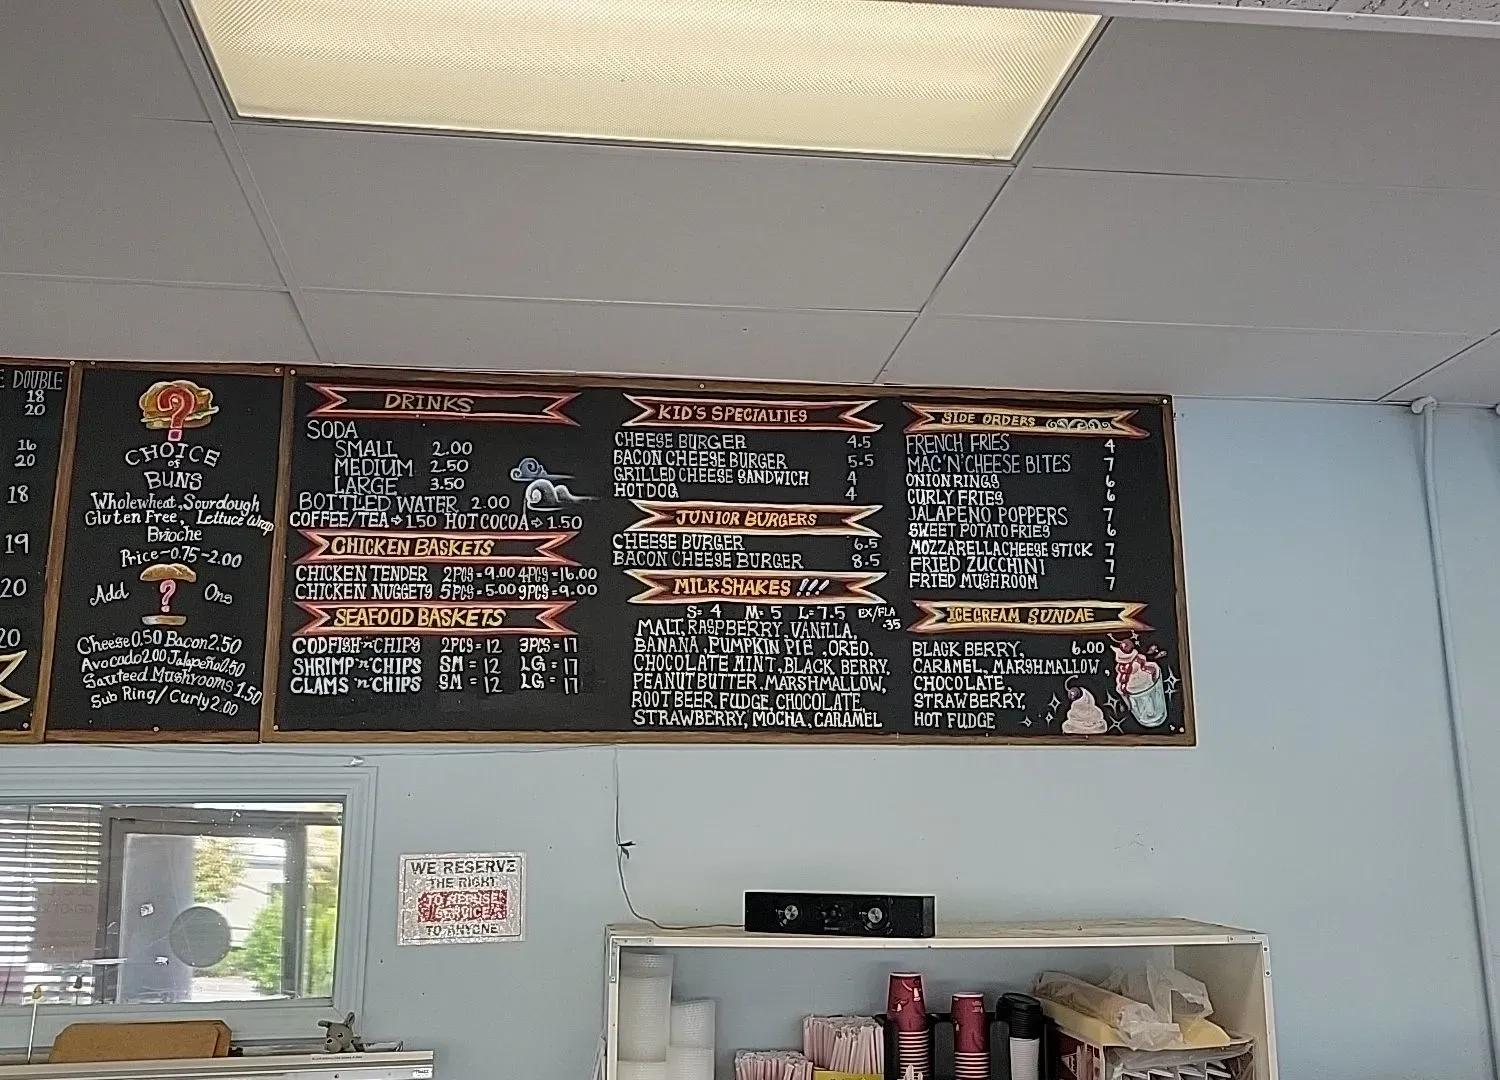 E DOUBLE
18
20
16
20
18
19
20
20
CHOICE
of
BUNS
Wholewheat, Sourdough
Gluten Free, Lettuce Wrap
Brioche
Price-0.75-2.00
Add ? Ons
Cheese 0.50 Bacon 2.50
Avocado 2.00 Jalapeño 0.50
Sauteed Mushrooms 1.50
Sub Ring/Curly 2.00
DRINKS
SODA
SMALL 2.00
MEDIUM 2.50
LARGE 3.50
BOTTLED WATER 2.00
COFFEE/TEA⇒1.50 HOT COCOA⇒1.50
CHICKEN BASKETS
CHICKEN TENDER 2PCS=9.00 4PCS=16.00
CHICKEN NUGGETS 5PCS=5.00 9PCS=9.00
SEAFOOD BASKETS
CODFISH 'n' CHIPS 2PCS=12 3PCS=17
SHRIMP 'n' CHIPS SM=12 LG=17
CLAMS 'n' CHIPS SM=12 LG=17
KID'S SPECIALTIES
CHEESE BURGER 4.5
BACON CHEESE BURGER 5.5
GRILLED CHEESE SANDWICH 4
HOT DOG 4
JUNIOR BURGERS
CHEESE BURGER 6.5
BACON CHEESE BURGER 8.5
MILKSHAKES !!!
S=4 M=5 L=7.5 EX/FLA .35
MALT, RASPBERRY, VANILLA,
BANANA, PUMPKIN PIE, OREO,
CHOCOLATE MINT, BLACK BERRY,
PEANUT BUTTER, MARSHMALLOW,
ROOT BEER, FUDGE, CHOCOLATE,
STRAWBERRY, MOCHA, CARAMEL
SIDE ORDERS
FRENCH FRIES 4
MAC 'N' CHEESE BITES 7
ONION RINGS 6
CURLY FRIES 6
JALAPENO POPPERS 7
SWEET POTATO FRIES 6
MOZZARELLA CHEESE STICK 7
FRIED ZUCCHINI 7
FRIED MUSHROOM 7
ICECREAM SUNDAE
BLACK BERRY, 6.00
CARAMEL, MARSHMALLOW,
CHOCOLATE,
STRAWBERRY,
HOT FUDGE
WE RESERVE
THE RIGHT
TO REFUSE
SERVICE
TO ANYONE